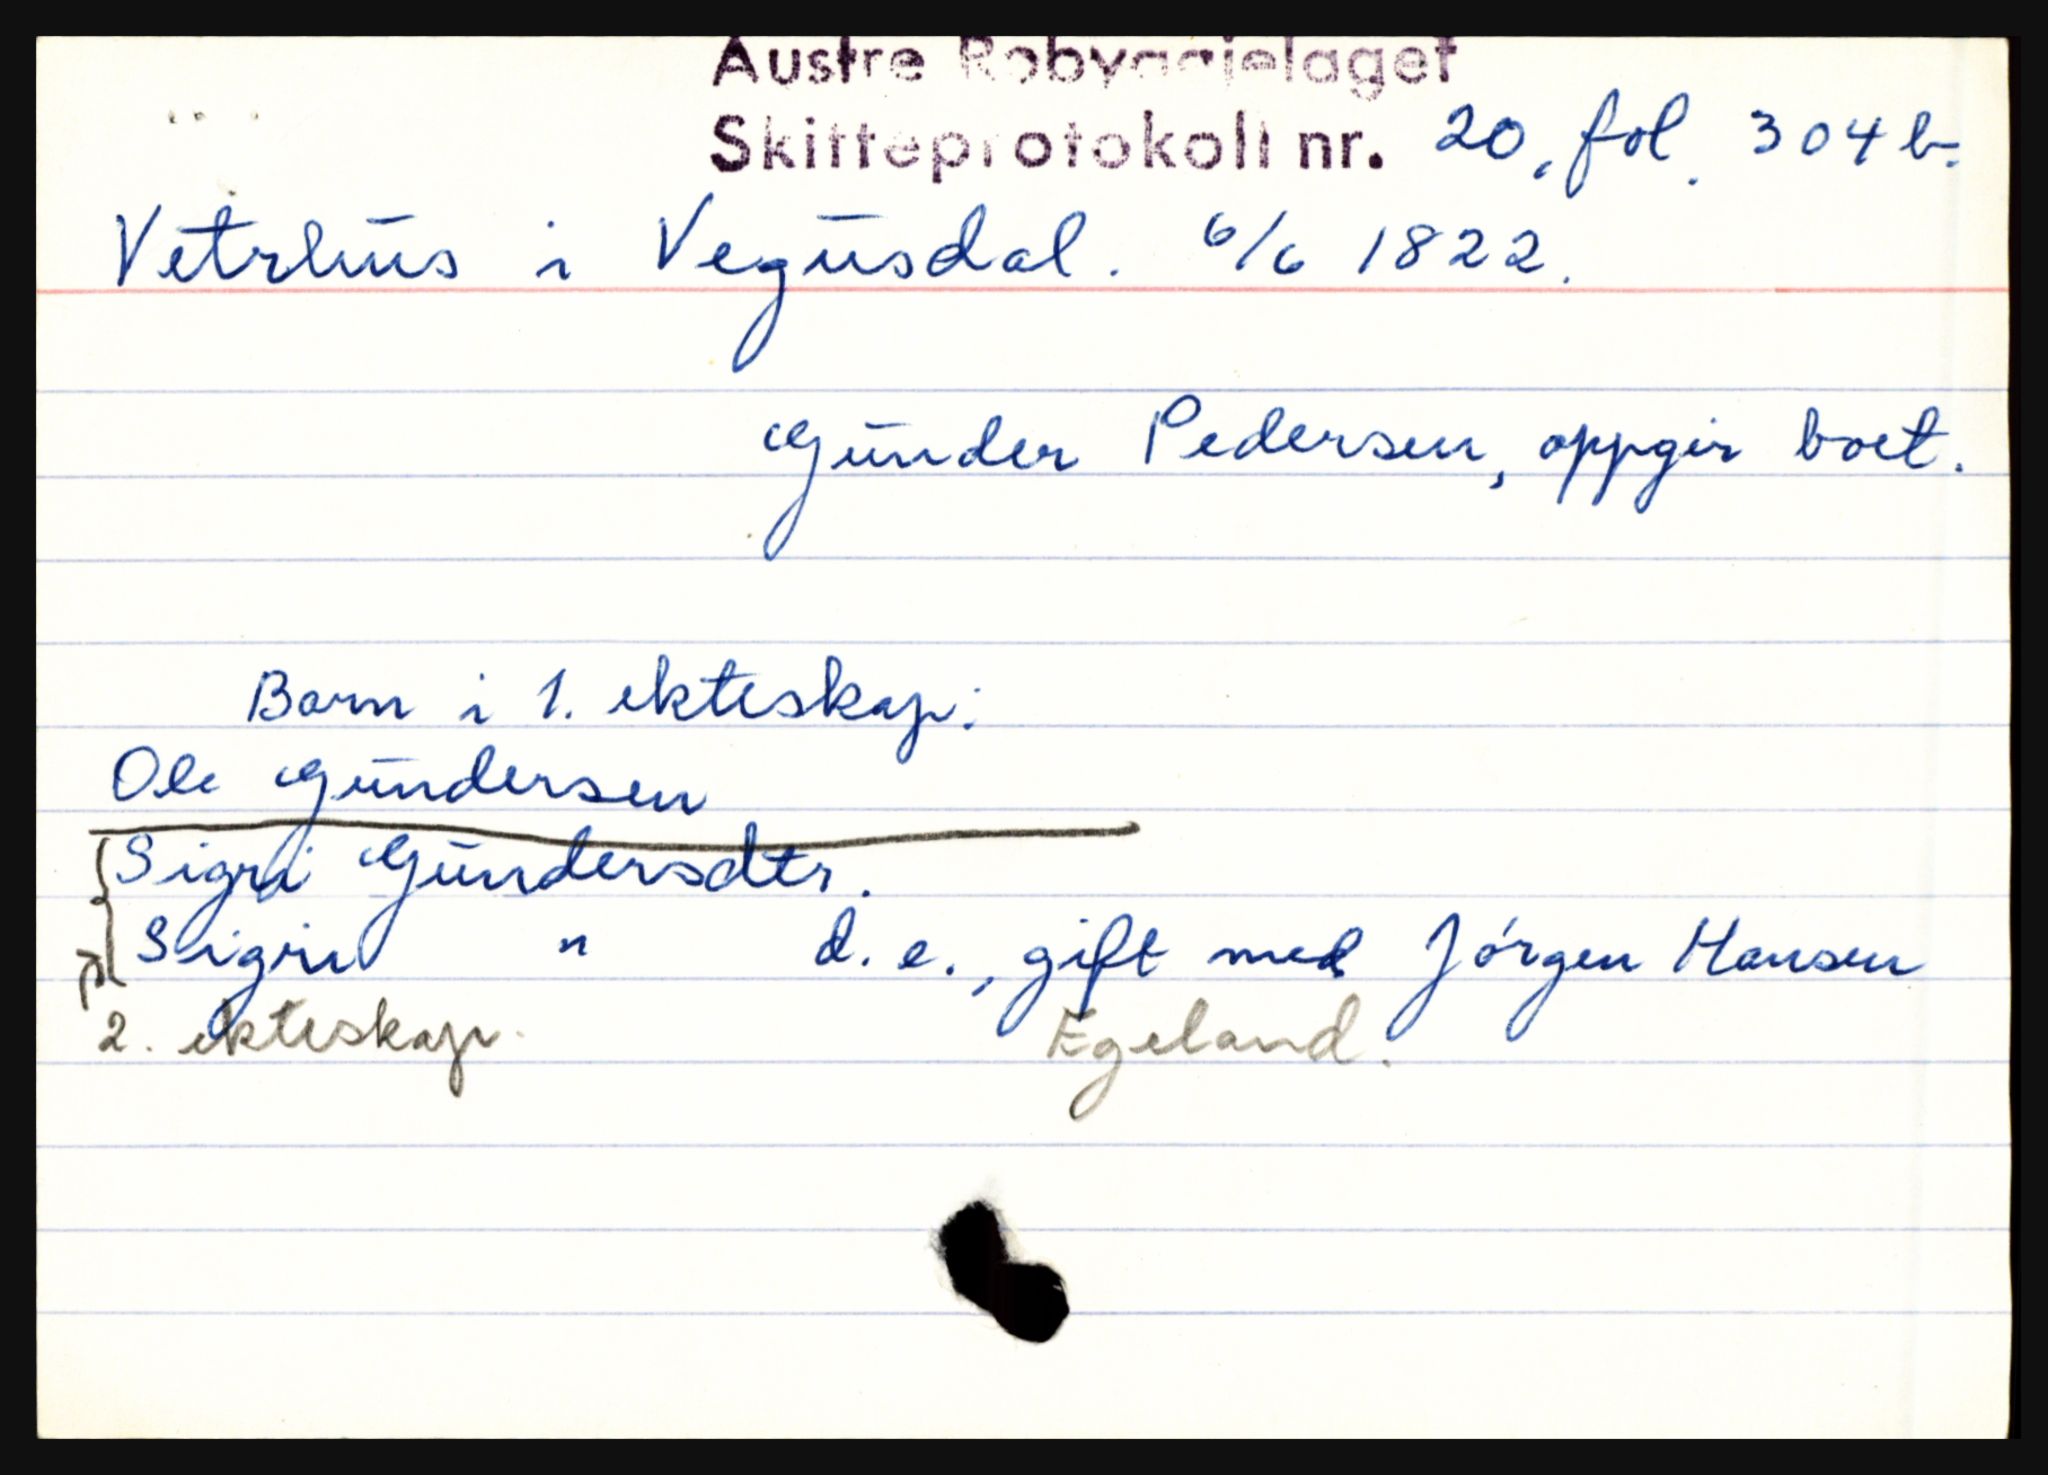 Austre Robyggjelaget
Skifteprotokoll nr. 20, fol. 304 b.
Vetrhus i Vegusdal. 6/6 1822.
Gunder Pedersen, oppgir boet.
Barn i 1. ekteskap:
Ole Gundersen
Sigri Gundersdtr.
Sigri " d. e., gift med Jörgen Hansen
2. ekteskap. Egeland.